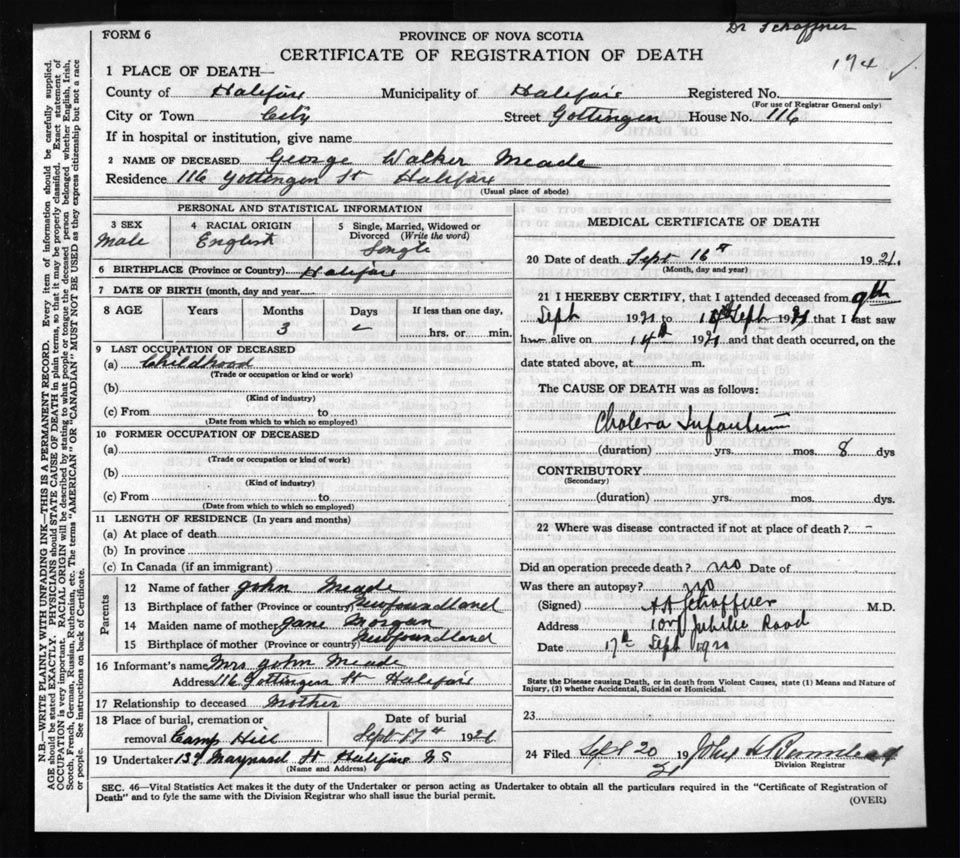 Dr Schaffner
FORM 6
PROVINCE OF NOVA SCOTIA
CERTIFICATE OF REGISTRATION OF DEATH
174 ✓
1 PLACE OF DEATH—
County of Halifax Municipality of Halifax Registered No.
(For use of Registrar General only)
City or Town City Street Gottingen House No. 116
If in hospital or institution, give name
2 NAME OF DECEASED George Walker Meade
Residence 116 Gottingen St Halifax
(Usual place of abode)
PERSONAL AND STATISTICAL INFORMATION
3 SEX
Male
4 RACIAL ORIGIN
English
5 Single, Married, Widowed or
Divorced (Write the word)
Single
6 BIRTHPLACE (Province or Country) Halifax
7 DATE OF BIRTH (month, day and year
8 AGE Years Months Days If less than one day,
3 hrs. or min.
9 LAST OCCUPATION OF DECEASED
(a) Childhood
(Trade or occupation or kind or work)
(b)
(Kind of industry)
(c) From to
(Date from which to which so employed)
10 FORMER OCCUPATION OF DECEASED
(a)
(Trade or occupation or kind of work)
(b)
(Kind of industry)
(c) From to
(Date from which to which so employed)
11 LENGTH OF RESIDENCE (In years and months)
(a) At place of death
(b) In province
(c) In Canada (if an immigrant)
Parents
12 Name of father John Meade
13 Birthplace of father (Province or country) Newfoundland
14 Maiden name of mother Jane Morgan
15 Birthplace of mother (Province or country) Newfoundland
16 Informant's name Mrs John Meade
Address 116 Gottingen St Halifax
17 Relationship to deceased Mother
18 Place of burial, cremation or Date of burial
removal Camp Hill Sept 17th 1921
19 Undertaker 137 Maynard St Halifax NS
(Name and Address)
MEDICAL CERTIFICATE OF DEATH
20 Date of death Sept 16th 1921.
(Month, day and year)
21 I HEREBY CERTIFY, that I attended deceased from 9th
Sept 1921 to Sept 1921 that I last saw
him alive on 14th 1921 and that death occurred, on the
date stated above, at m.
The CAUSE OF DEATH was as follows:
Cholera Infantum
(duration) yrs. mos. 8 dys
CONTRIBUTORY
(Secondary)
(duration) yrs. mos. dys.
22 Where was disease contracted if not at place of death? –
Did an operation precede death? no Date of
Was there an autopsy? no
(Signed) Schaffner M.D.
Address Jubilee Road
Date 17th Sept 1921
State the Disease causing Death, or in death from Violent Causes, state (1) Means and Nature of
Injury, (2) whether Accidental, Suicidal or Homicidal.
23
24 Filed Sept 20 19 21 John
Division Registrar
SEC. 46—Vital Statistics Act makes it the duty of the Undertaker or person acting as Undertaker to obtain all the particulars required in the "Certificate of Registration of
Death" and to fyle the same with the Division Registrar who shall issue the burial permit.
(OVER)
N.B.—WRITE PLAINLY WITH UNFADING INK—THIS IS A PERMANENT RECORD. Every item of information should be carefully supplied.
AGE should be stated EXACTLY. PHYSICIANS should STATE CAUSE OF DEATH in plain terms, so that it may be properly classified. Exact statement of
OCCUPATION is very important. RACIAL ORIGIN will be described by stating to what people or tongue the deceased person belonged whether English, Irish,
Scotch, French, German, Russian, Ruthenian, etc. The terms "AMERICAN" OR "CANADIAN" MUST NOT BE USED as they express citizenship but not a race
or people. See instructions on back of Certificate.